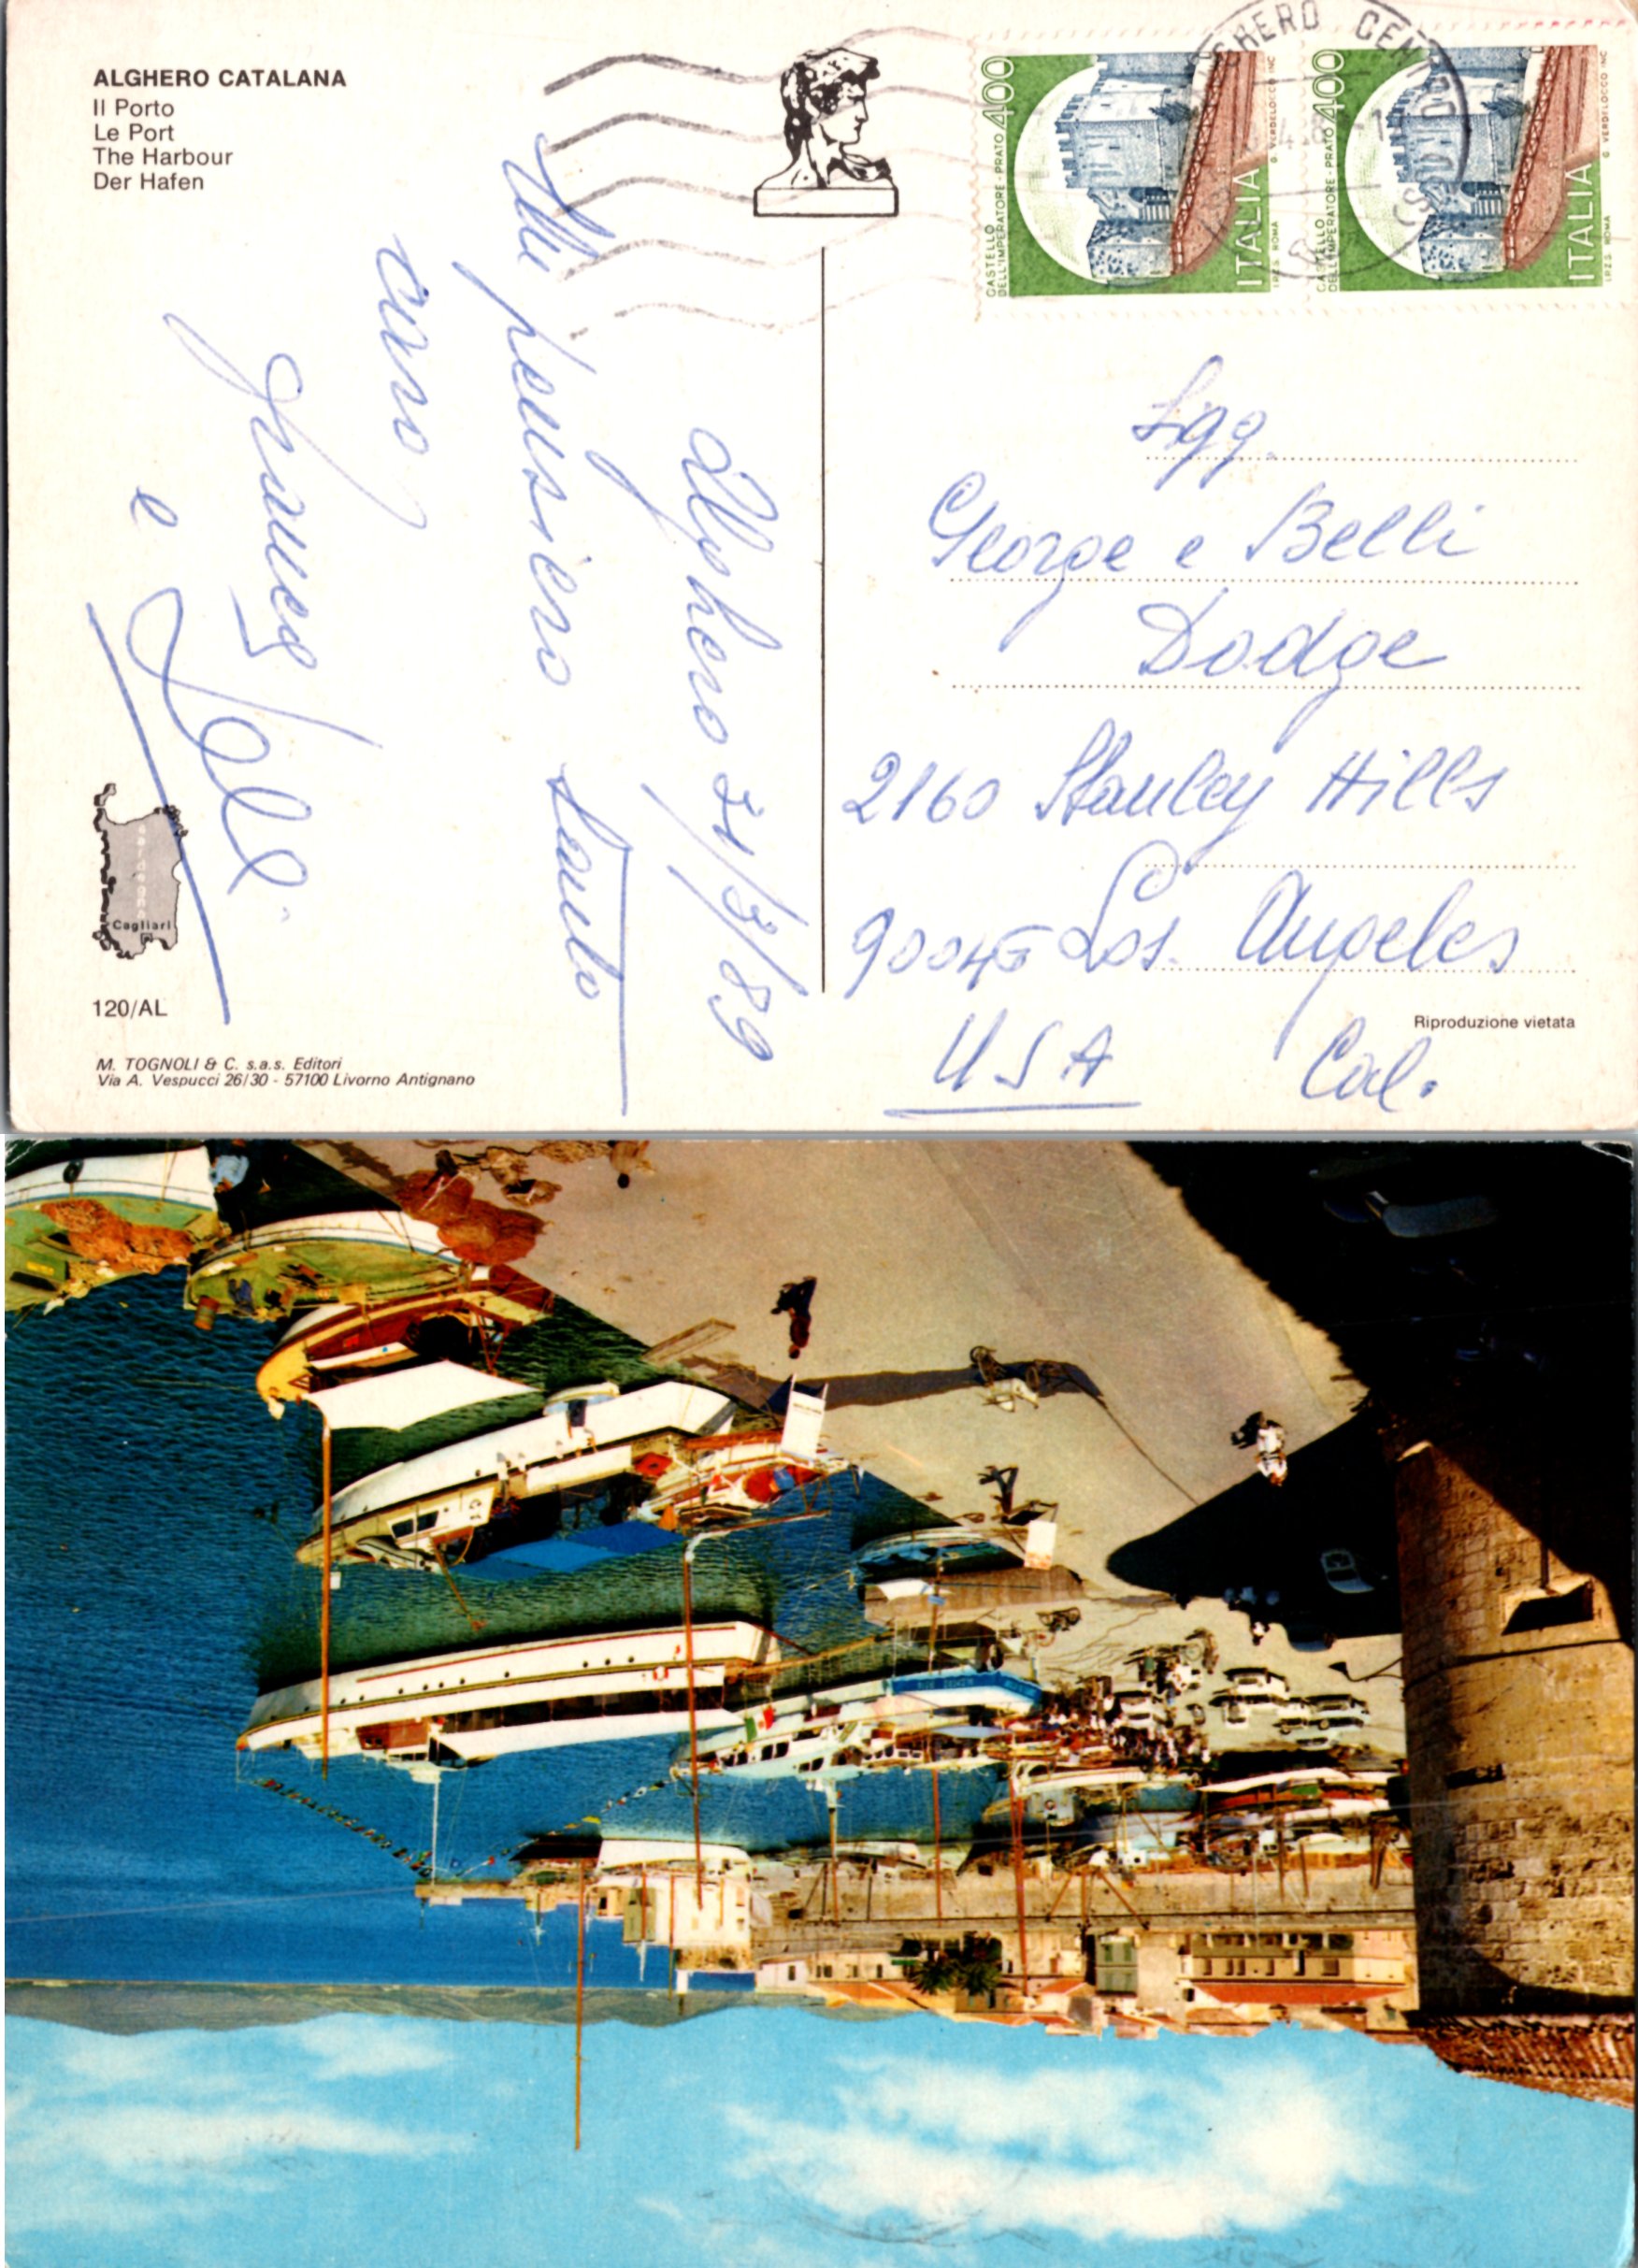 ALGHERO CATALANA
Il Porto
Le Port
The Harbour
Der Hafen
GHERO CENTRO
400
CASTELLO
DELL'IMPERATORE - PRATO
ITALIA
I.P.Z.S. ROMA
G. VERDELOCCO INC
400
CASTELLO
DELL'IMPERATORE - PRATO
ITALIA
I.P.Z.S. ROMA
G. VERDELOCCO INC
Alghero 31/3/89
Un pensiero tanto
caro
e
Sigg.
George e Belli
Dodge
2160 Stanley Hills
90046 Los. Angeles
USA Cal.
Sardegna
Cagliari
120/AL
Riproduzione vietata
M. TOGNOLI & C. s.a.s. Editori
Via A. Vespucci 26/30 - 57100 Livorno Antignano